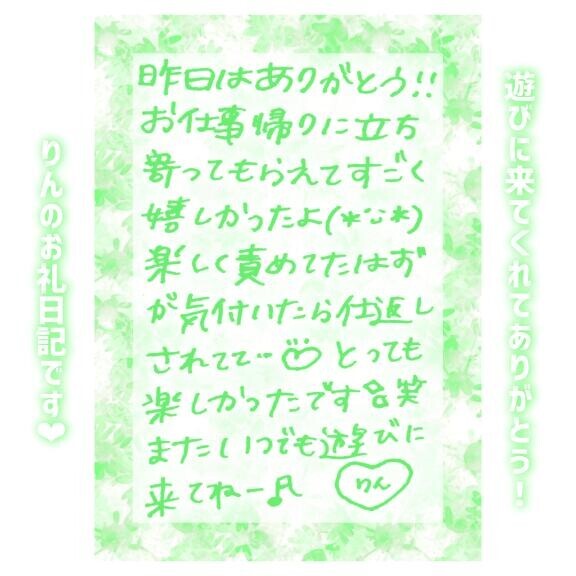 遊びに来てくれてありがとう！
昨日はありがとう!!
お仕事帰りに立ち
寄ってもらえてすごく
嬉しかったよ(*ᵕᵕ*)
楽しく責めてたはず
が気付いたら仕返し
されてて…♡とっても
楽しかったです笑
またいつでも遊びに
来てねー♪
りん
りんのお礼日記です❤